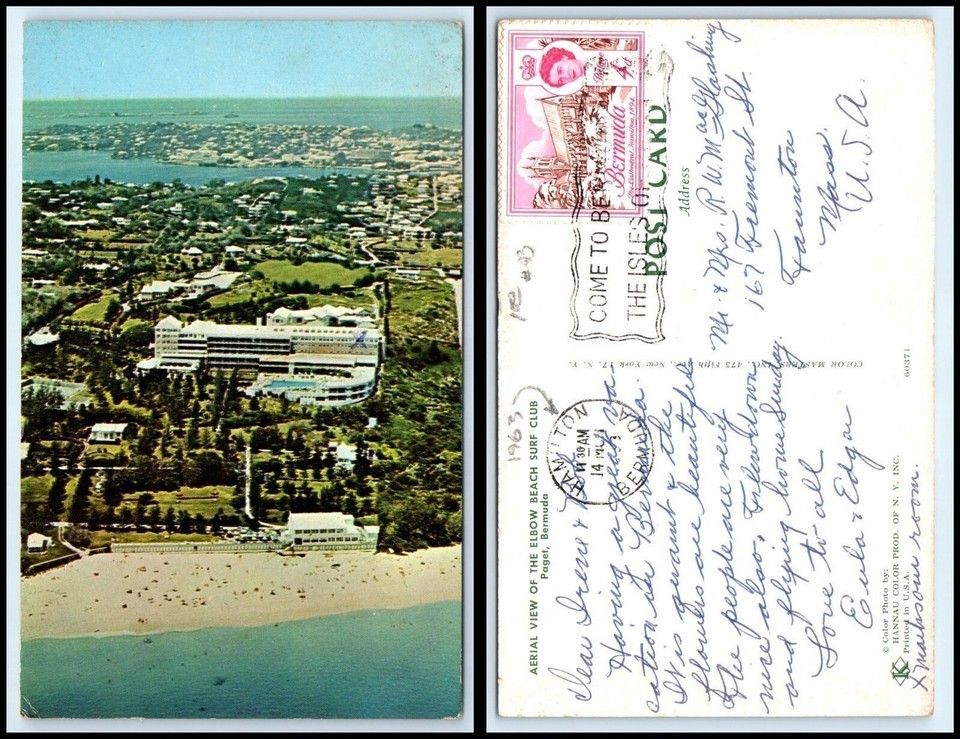 AERIAL VIEW OF THE ELBOW BEACH SURF CLUB
Paget, Bermuda
Dear Irene &
Having a grand va
cation in Bermuda.
It is quaint & the
flowers are beautiful
The people are very
nice also, Flew down
and flying home Sunday.
Love to all
Eula & Edgar
© Color Photo by:
HANNAU COLOR PROD. OF N. Y. INC.
Printed in U.S.A.
K
X marks our room.
1963
100
COLOR MASTERS INC., 475 Fifth Ave., New York 17, N. Y.
60371
HAMILTON
11 30 AM
14 
BERMUDA
COME TO BE
THE ISLES O
4d
Bermuda
Cathedral, Hamilton 1894
POST CARD
Address
Mr. & Mrs. R. W. 
167 Fremont St
Taunton
Mass.
U.S.A.
X